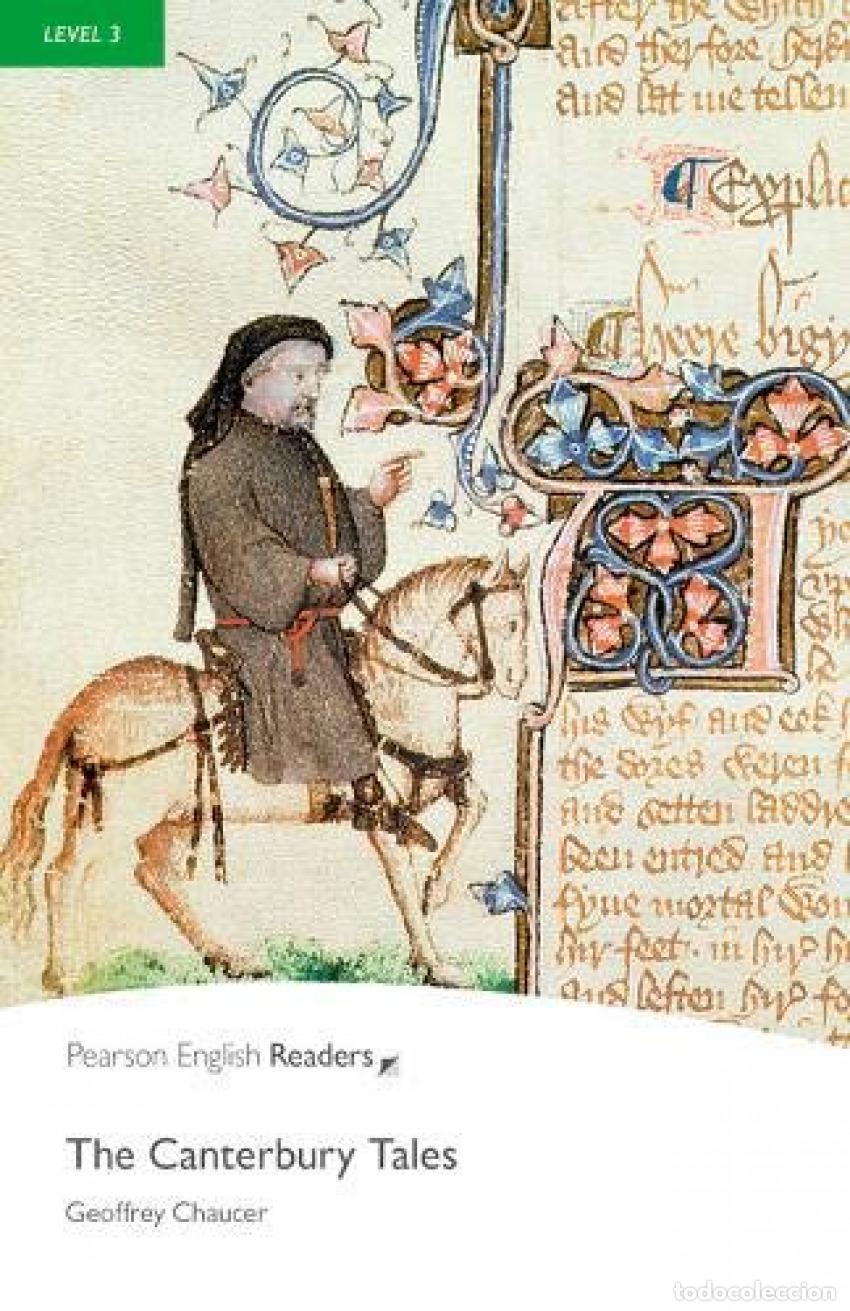 LEVEL 3
after the which
and therfore herk
and lat me tellen
Explic
Heere bigy
his wyf and eek
the dores weren f
and setten laddre
been entred and
fyue mortal wou
hir feet. in hir h
and leften hir fo
Pearson English Readers
The Canterbury Tales
Geoffrey Chaucer
todocoleccion